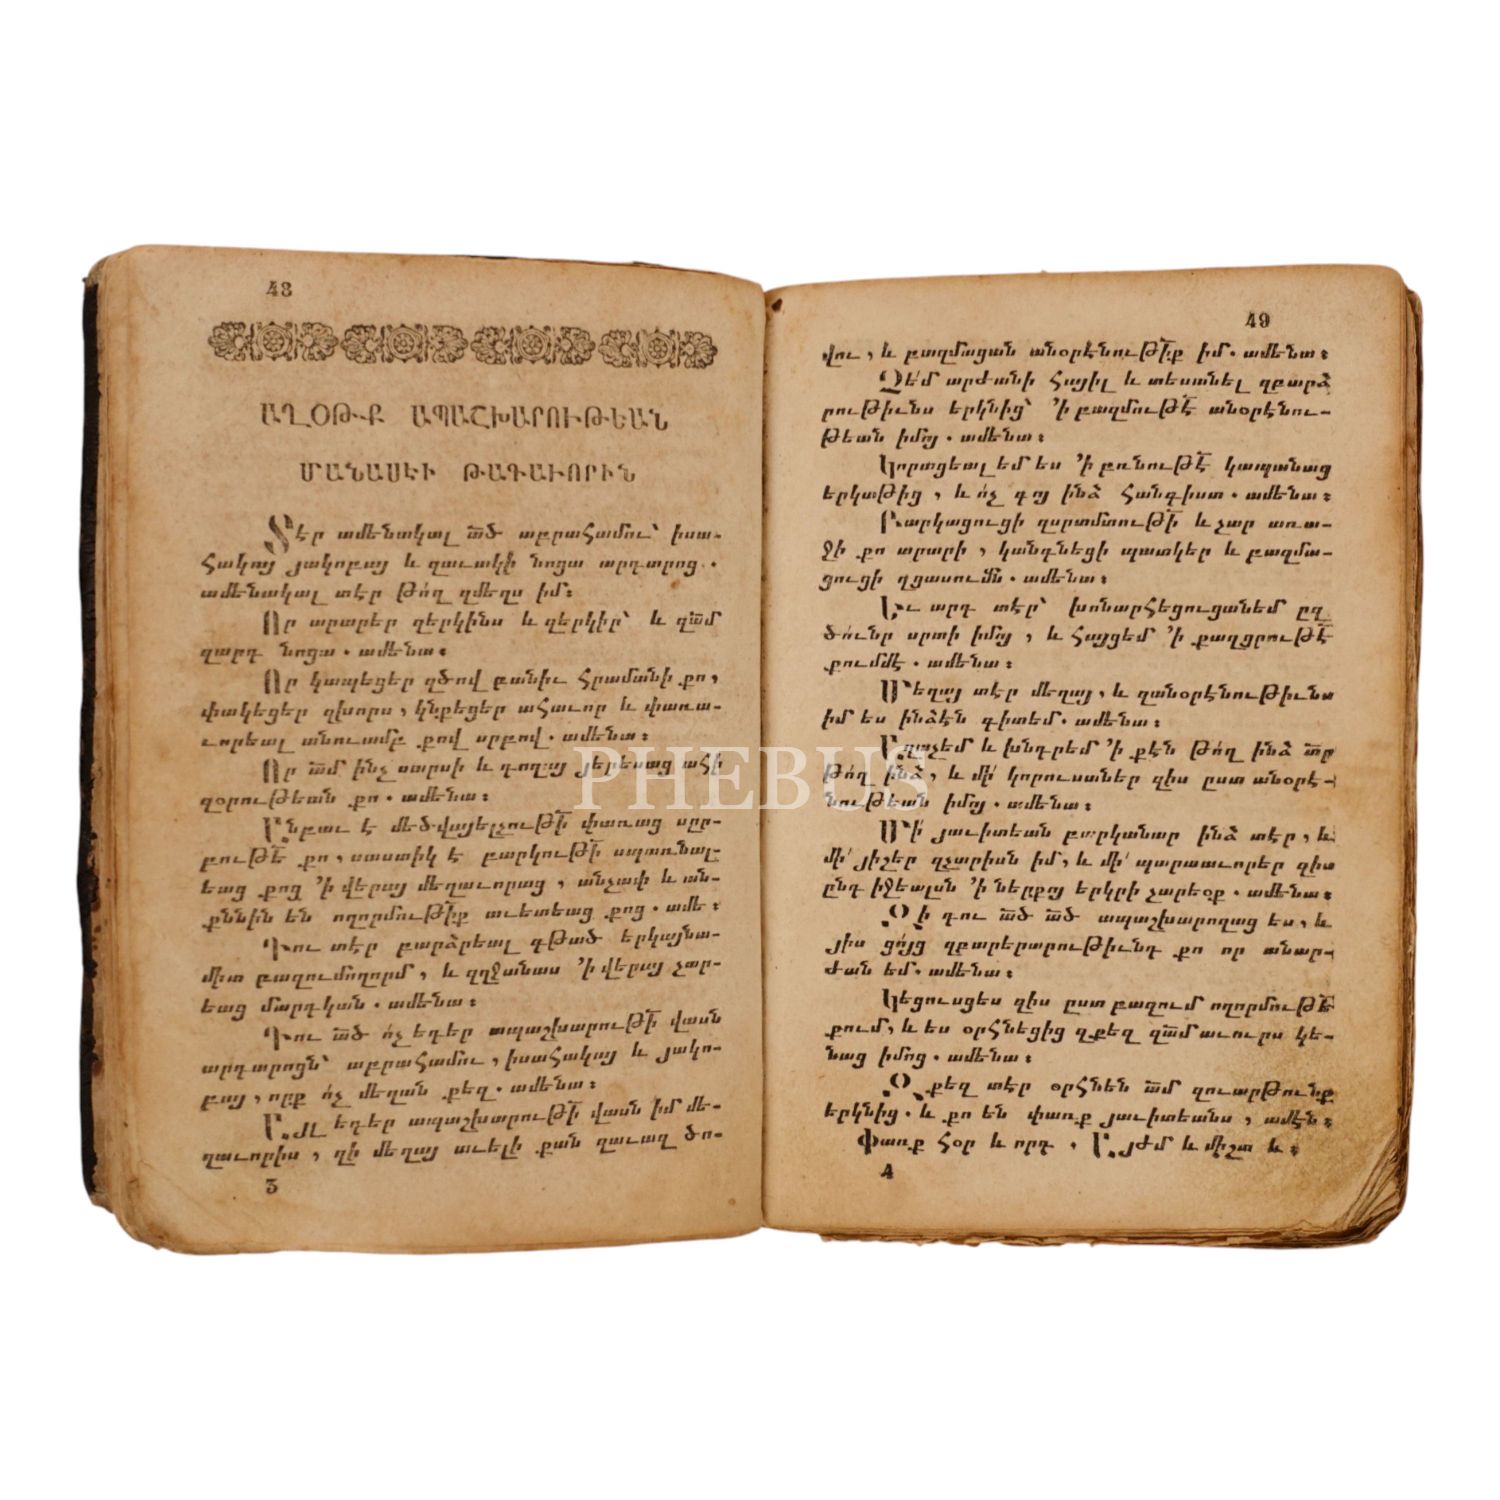 48
ԱՂՕԹՔ ԱՊԱՇԽԱՐՈՒԹԵԱՆ
ՄԱՆԱՍԷԻ ԹԱԳԱՒՈՐԻՆ
Տէր ամենակալ ա՟ծ աբրահամու՝ իսա-
հակայ յակոբայ և զաւակի նոցա արդարոց.
ամենակալ տէր թո՛ղ զմեղս իմ։
Որ արարեր զերկինս և զերկիր՝ և զա՟մ
զարդ նոցա. ամենա։
Որ կապեցեր զծով բանիւ հրամանի քո,
փակեցեր զխորս, կնքեցեր ահաւոր և փառա-
ւորեալ անուամբ քով սրբով. ամենա։
Որ ա՟մ ինչ սարսի և դողայ յերեսաց ահի
զօրութեան քո. ամենա։
Անբաւ է մեծվայելչութի՟ փառաց սըր-
բութե՟ քո, սաստիկ է բարկութի՟ սպառնալ-
եաց քոց ՚ի վերայ մեղաւորաց, անչափ և ան-
քննին են ողորմութի՟ք աւետեաց քոց. ամե։
Դու տէր բարձրեալ գթած երկայնա-
միտ բազումողորմ, և զղջանաս ՚ի վերայ չար-
եաց մարդկան. ամենա։
Դու ա՟ծ ո՛չ եդեր ապաշխարութի՟ վասն
արդարոցն՝ աբրահամու, իսահակայ և յակո-
բայ, որք ո՛չ մեղան քեզ. ամենա։
Այլ եդեր ապաշխարութի՟ վասն իմ մե-
ղաւորիս, զի մեղայ աւելի քան զաւազ ծո-
3
49
վու, և բազմացան անօրէնութի՟ք իմ. ամենա։
Չե՛մ արժանի հայիլ և տեսանել զբարձ
րութիւնս երկնից՝ ՚ի բազմութէ՟ անօրէնու-
թեան իմոյ. ամենա։
Կորացեալ եմ ես ՚ի բռնութէ՟ կապանաց
երկաթից, և ո՛չ գոյ ինձ հանգիստ. ամենա։
Բարկացուցի զսրտմտութի՟ և չար առա-
ջի քո արարի, կանգնեցի պատկեր և բազմա-
ցուցի զգասումն. ամենա։
Եւ արդ տէր՝ խոնարհեցուցանեմ ըզ
ծունր սրտի իմոյ, և հայցեմ ՚ի քաղցրութէ՟
քումմէ. ամենա։
Մեղայ տէր մեղայ, և զանօրէնութիւնս
իմ ես ինձէն գիտեմ. ամենա։
Աղաչեմ և խնդրեմ ՚ի քէն թո՛ղ ինձ տ՟ր
թո՛ղ ինձ, և մի՛ կորուսաներ զիս ըստ անօրէ-
նութեան իմոյ. ամենա։
Մի՛ յաւիտեան բարկանար ինձ տէր, և
մի՛ յիշեր զչարիսն իմ, և մի՛ պարաւորեր զիս
ընդ իջեալսն ՚ի ներքոյ երկրի չարեօք. ամենա։
Զի դու ա՟ծ ա՟ծ ապաշխարողաց ես, և
յիս ցո՛յց զբարերարութիւնդ քո որ անար-
ժան եմ. ամենա։
Կեցուսցես զիս ըստ բազում ողորմութե՟
քում, և ես օրհնեցից զքեզ զա՟մ աւուրս կե-
նաց իմոց. ամենա։
Զքեզ տէր օրհնեն ա՟մ զուարթունք
երկնից. և քո են փառք յաւիտեանս, ամէն։
Փառք հօր և որդ, Այժմ և միշտ և։
4
PHEBUS